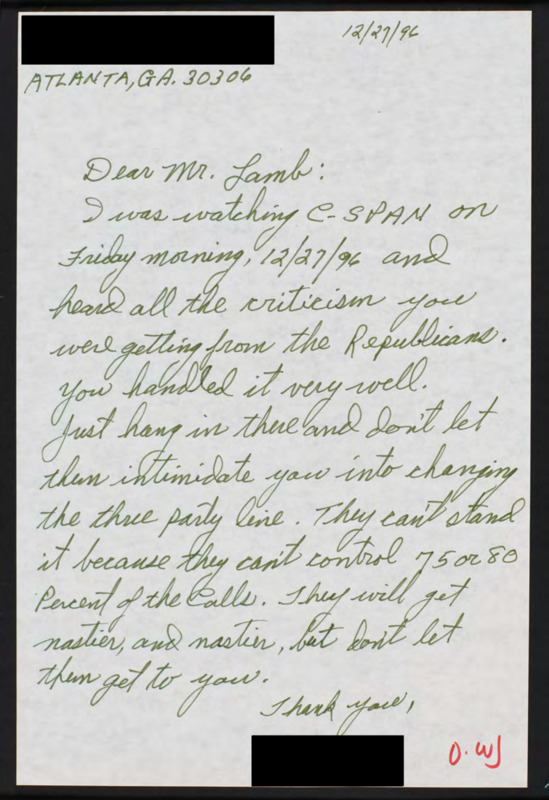 12/27/96
ATLANTA, GA. 30306
Dear Mr. Lamb:
I was watching C-SPAN on
Friday morning, 12/27/96 and
heard all the criticism you
were getting from the Republicans.
You handled it very well.
Just hang in there and don't let
them intimidate you into changing
the three party line. They can't stand
it because they can't control 75 or 80
Percent of the Calls. They will get
nastier, and nastier, but don't let
them get to you.
Thank you,
O. WJ